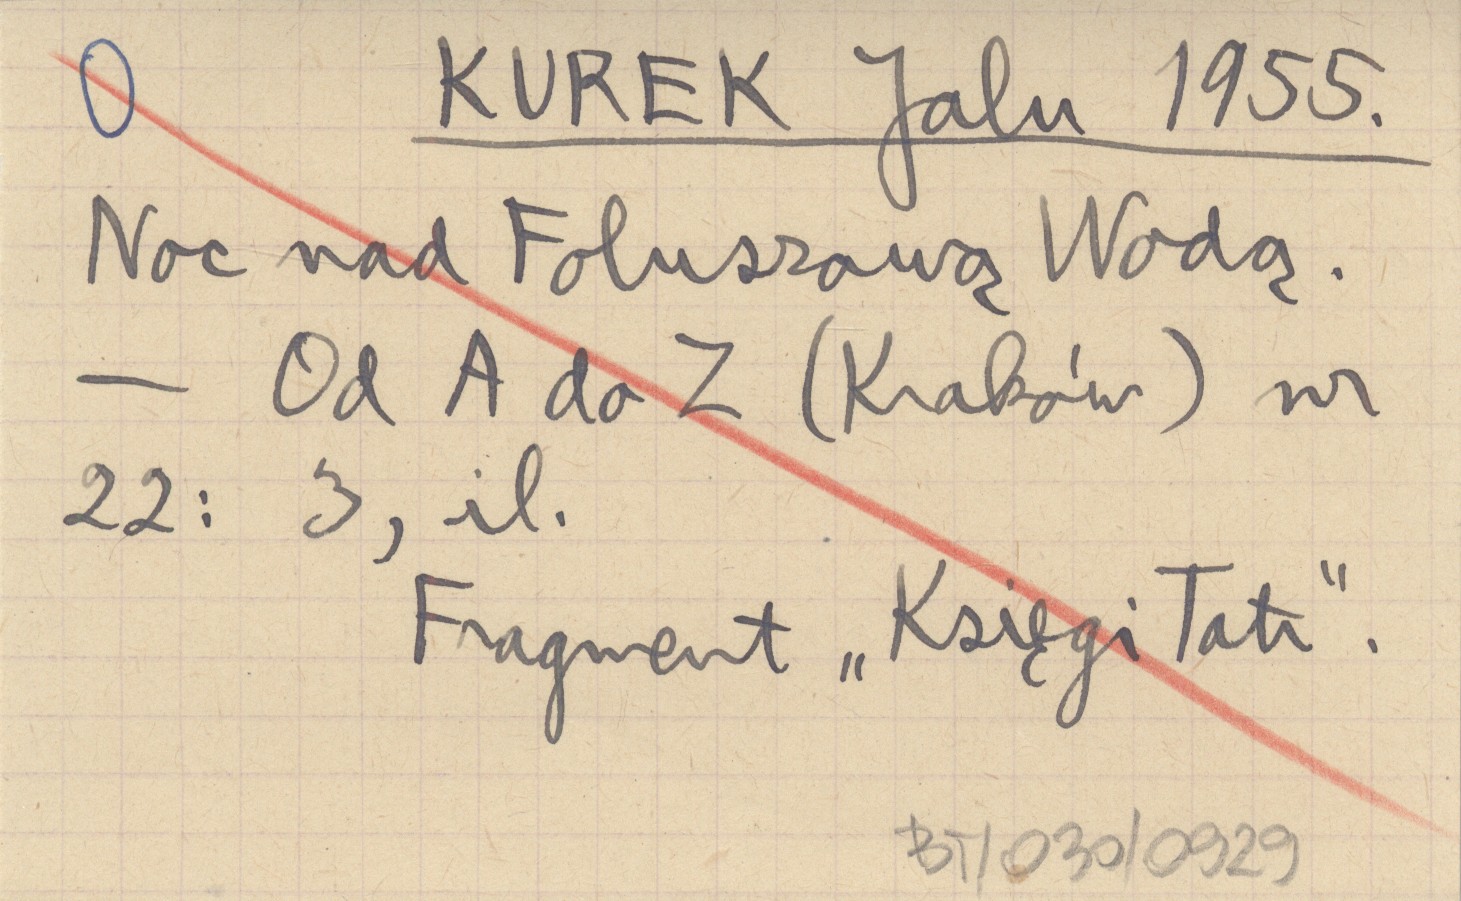 0 KUREK Jalu 1955.
Noc nad Foluszową Wodą.
— Od A do Z (Kraków) nr
22: 3, il.
Fragment „Księgi Tatr".
BT/030/0929